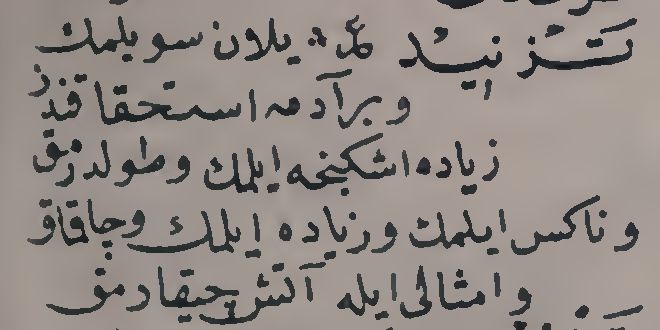 تزنيد ع یلان سویلمك
و بر آدمه استحقاقندن
زیاده اشكنجه ایلمك و طولدرمق
و ناكس ایلمك و زیاده ایلمك و چاقماق
و امثالی ایله آتش چیقادرمق